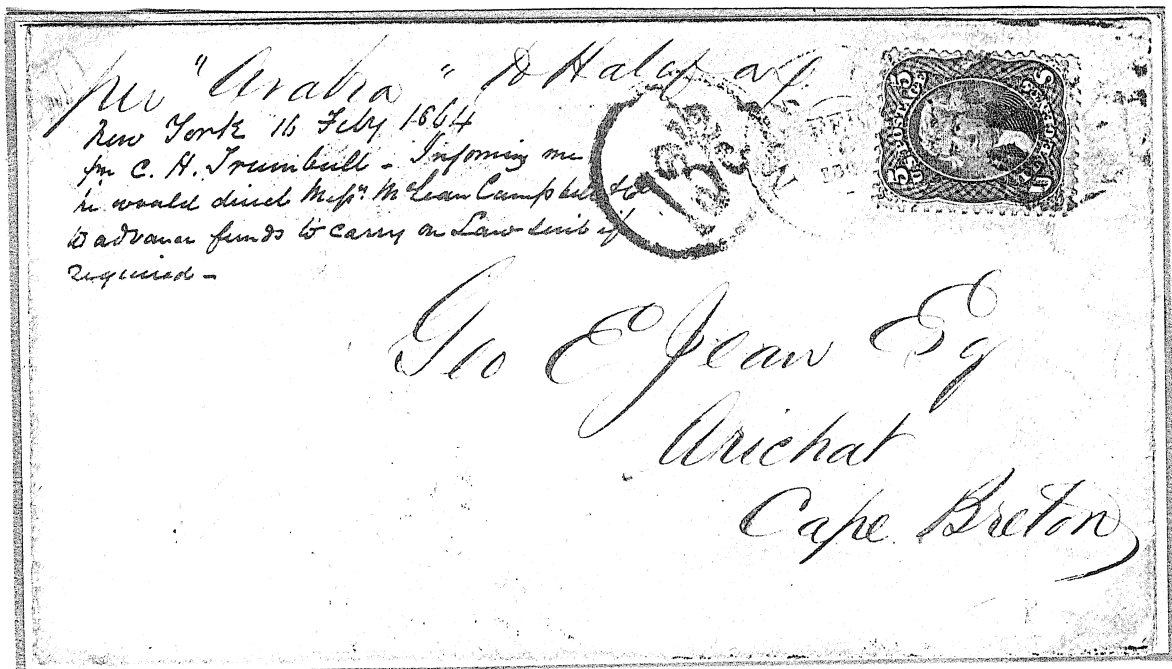 per "Arabia" to Halifax
New York 16 Feby 1864
fm C. H. Trumbull - Informing me
he would direct Messrs. McLean Campbell & Co
to advance funds to carry on Law suit if
required -
U.S. POSTAGE
5 5
Geo E Jean Eq
Arichat
Cape Breton